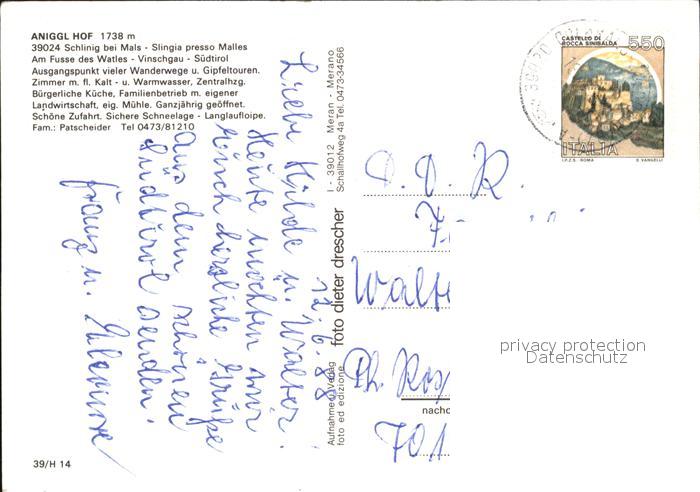 ANIGGL HOF 1738 m
39024 Schlinig bei Mals - Slingia presso Malles
Am Fusse des Watles - Vinschgau - Südtirol
Ausgangspunkt vieler Wanderwege u. Gipfeltouren.
Zimmer m. fl. Kalt - u. Warmwasser, Zentralhzg.
Bürgerliche Küche, Familienbetrieb m. eigener
Landwirtschaft, eig. Mühle. Ganzjährig geöffnet.
Schöne Zufahrt. Sichere Schneelage - Langlaufloipe.
Fam.: Patscheider Tel 0473/81210
12.6.88
Liebe Hilde u. Walter!
Heute möchten wir
euch herzliche Grüße
aus dem schönen
Südtirol senden.
Franz u.
39/H 14
I - 39012 Meran - Merano
Schallhofweg 4a Tel. 0473-34566
foto dieter drescher
Aufnahme u. Verlag
foto ed edizione
CASTELLO DI
ROCCA SINIBALDA
550
ITALIA
I.P.Z.S. ROMA
E. VANGELLI
Walt
Ph. Ros
nacho
701
privacy protection
Datenschutz